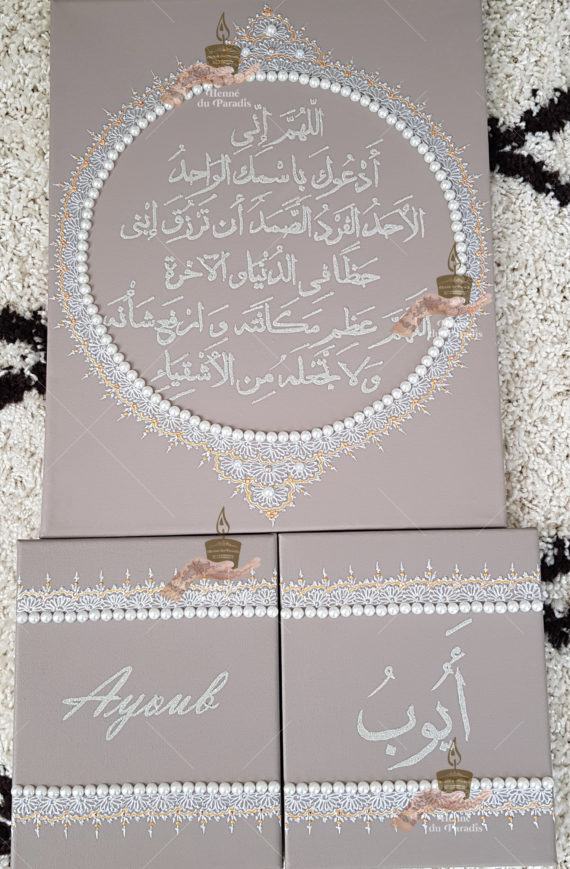 اللّهُمَّ إنِّي
أَدْعُوكَ بِاسْمِكَ الوَاحِدُ
الأَحَدُ الفَرْدُ الصَّمَدَ أَن تَرْزُقَ إبْنِي
حَظًا فِي الدُنْيَا و الآخِرَة
اللهُمَّ عَظِم مَكَانَتَه وَ ارْفَعْ شَأْنَه
وَلاَ تَجْعَلَهُ مِن الأَشْقِيَاءِ
Ayoub
أَيُّوبُ
Henné
du Paradis
Henné
du Paradis